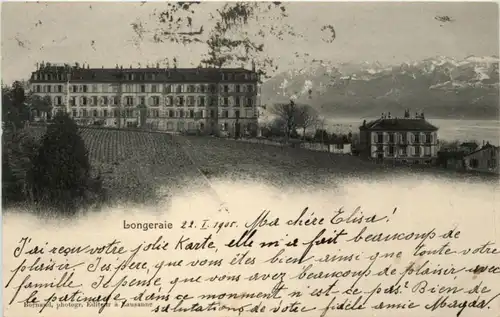 Longeraie 22. I. 1905. Ma chère Elisa!
J'ai reçu votre jolie Karte, elle m'a fait beaucoup de
plaisir. J'espère, que vous êtes bien ainsi que toute votre
famille. Je pense, que vous avez beaucoup de plaisir avec
le patinage, dans ce moment n'est ce pas! Bien de
Bornand, photogr. Editeur à Lausanne
salutations de votre fidèle amie Magda.